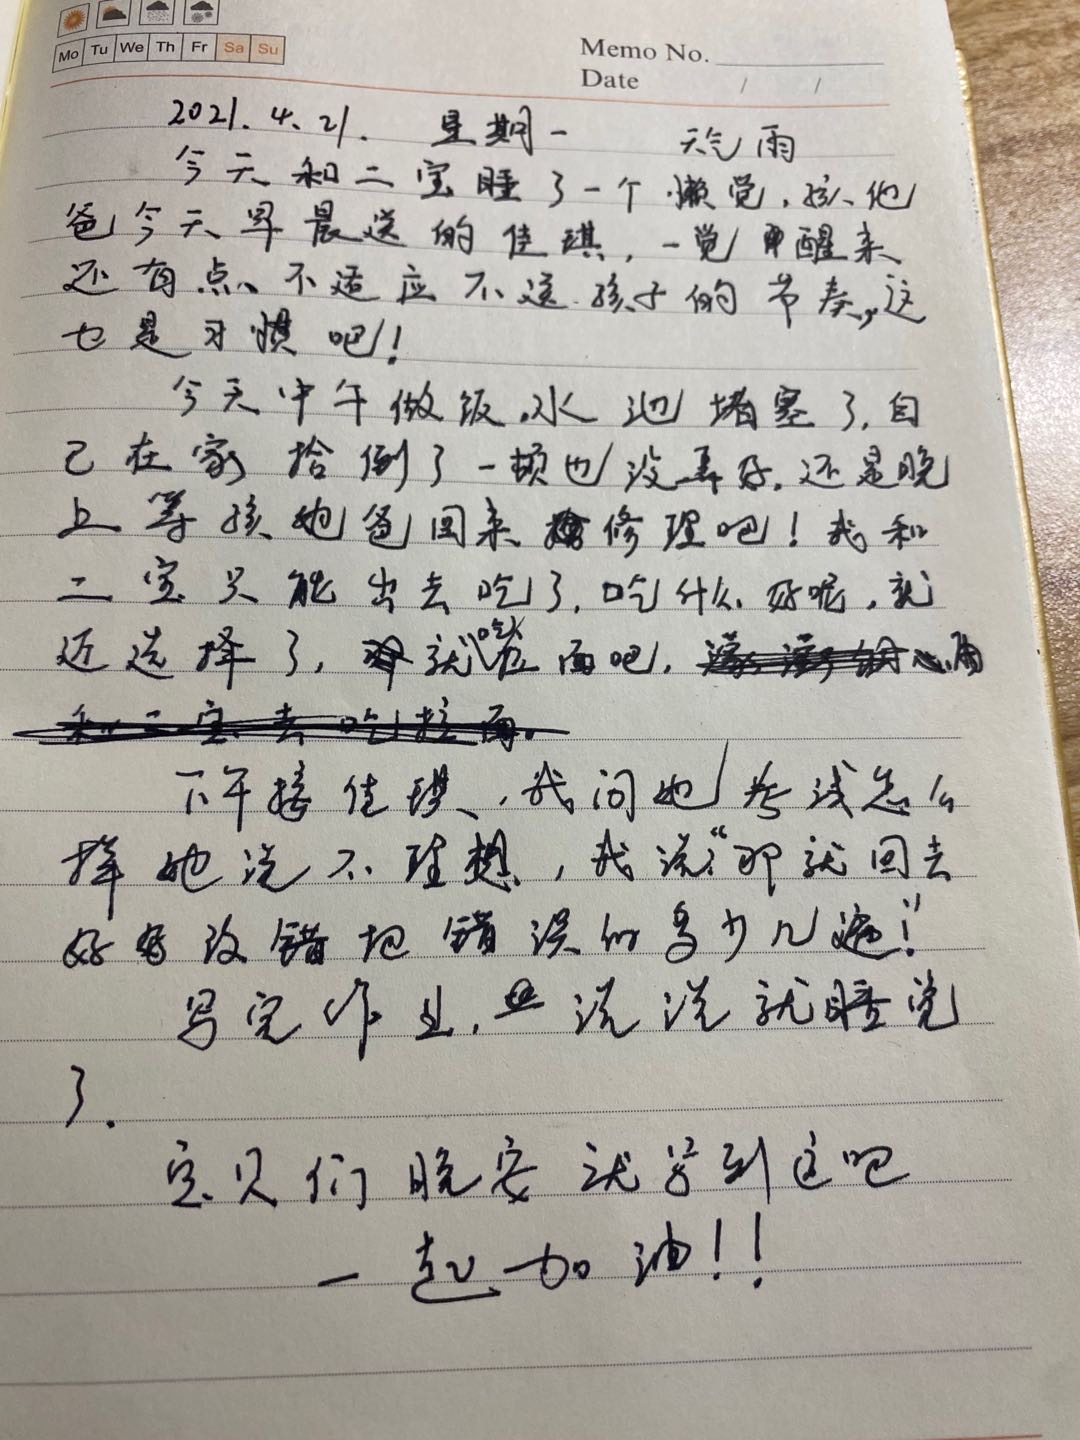 Mo Tu We Th Fr Sa Su
Memo No.
Date / /
2021.4.21. 星期一 天气雨
今天和二宝睡了一个懒觉，孩他
爸今天早晨送的佳琪，一觉醒来
还有点不适应不送孩子的节奏，这
也是习惯吧！
今天中午做饭，水池堵塞了，自
己在家拾倒了一顿也没弄好，还是晚
上等孩她爸回来修理吧！我和
二宝只能出去吃了，吃什么好呢，就
近选择了，就吃拉面吧，
和二宝去吃拉面。
下午接佳琪，我问她考试怎么
样她说不理想，我说：“那就回去
好好改错把错误的多少几遍！”
写完作业，说说就睡觉
了.
宝贝们晚安就写到这吧
一起加油！！